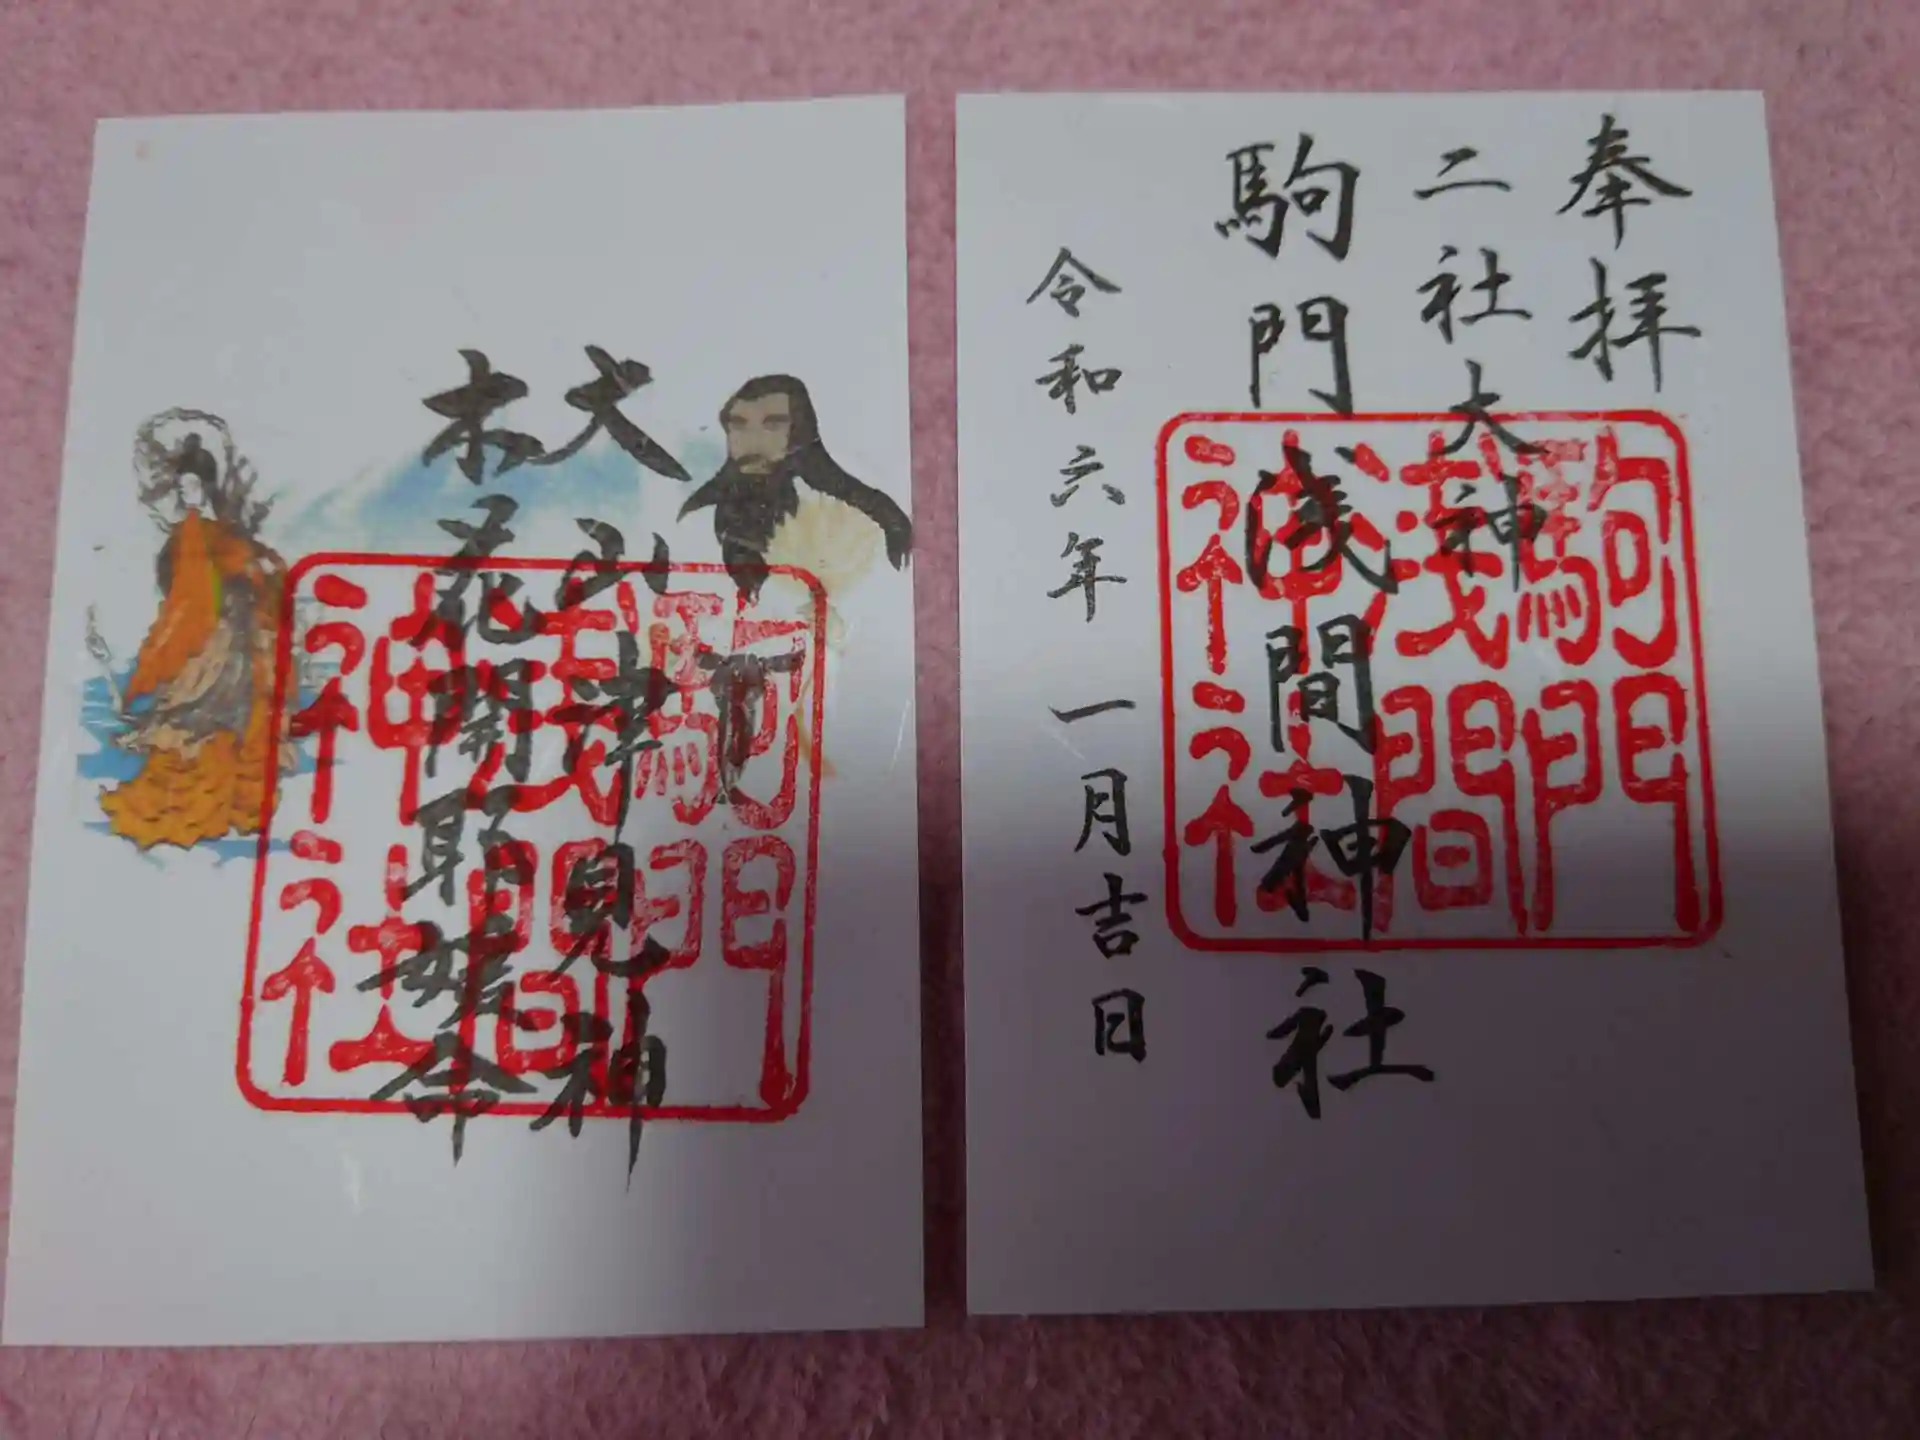 奉拝
二社大神
駒門浅間神社
令和六年一月吉日
駒門
浅間
神社
大山津見神
木花開耶媛命
駒門
浅間
神社